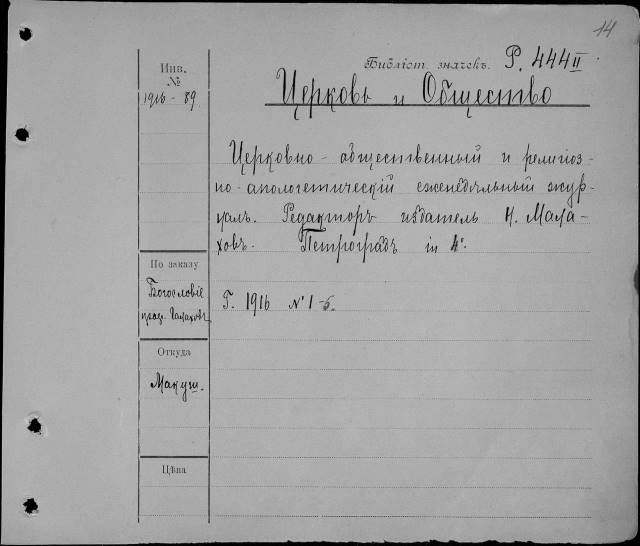 14
Библіот. значекъ. P. 444 II
Церковь и Общество
Инв.
№
1916 - 89.
Церковно-общественный и религіоз-
но-апологетическій еженедѣльный жур-
налъ. Редакторъ издатель Н. Мала-
ховъ. Петроградъ in 4°.
По заказу
Богословіе
проф. Галаховъ
Г. 1916 № 1-6.
Откуда
Макуш.
Цѣна